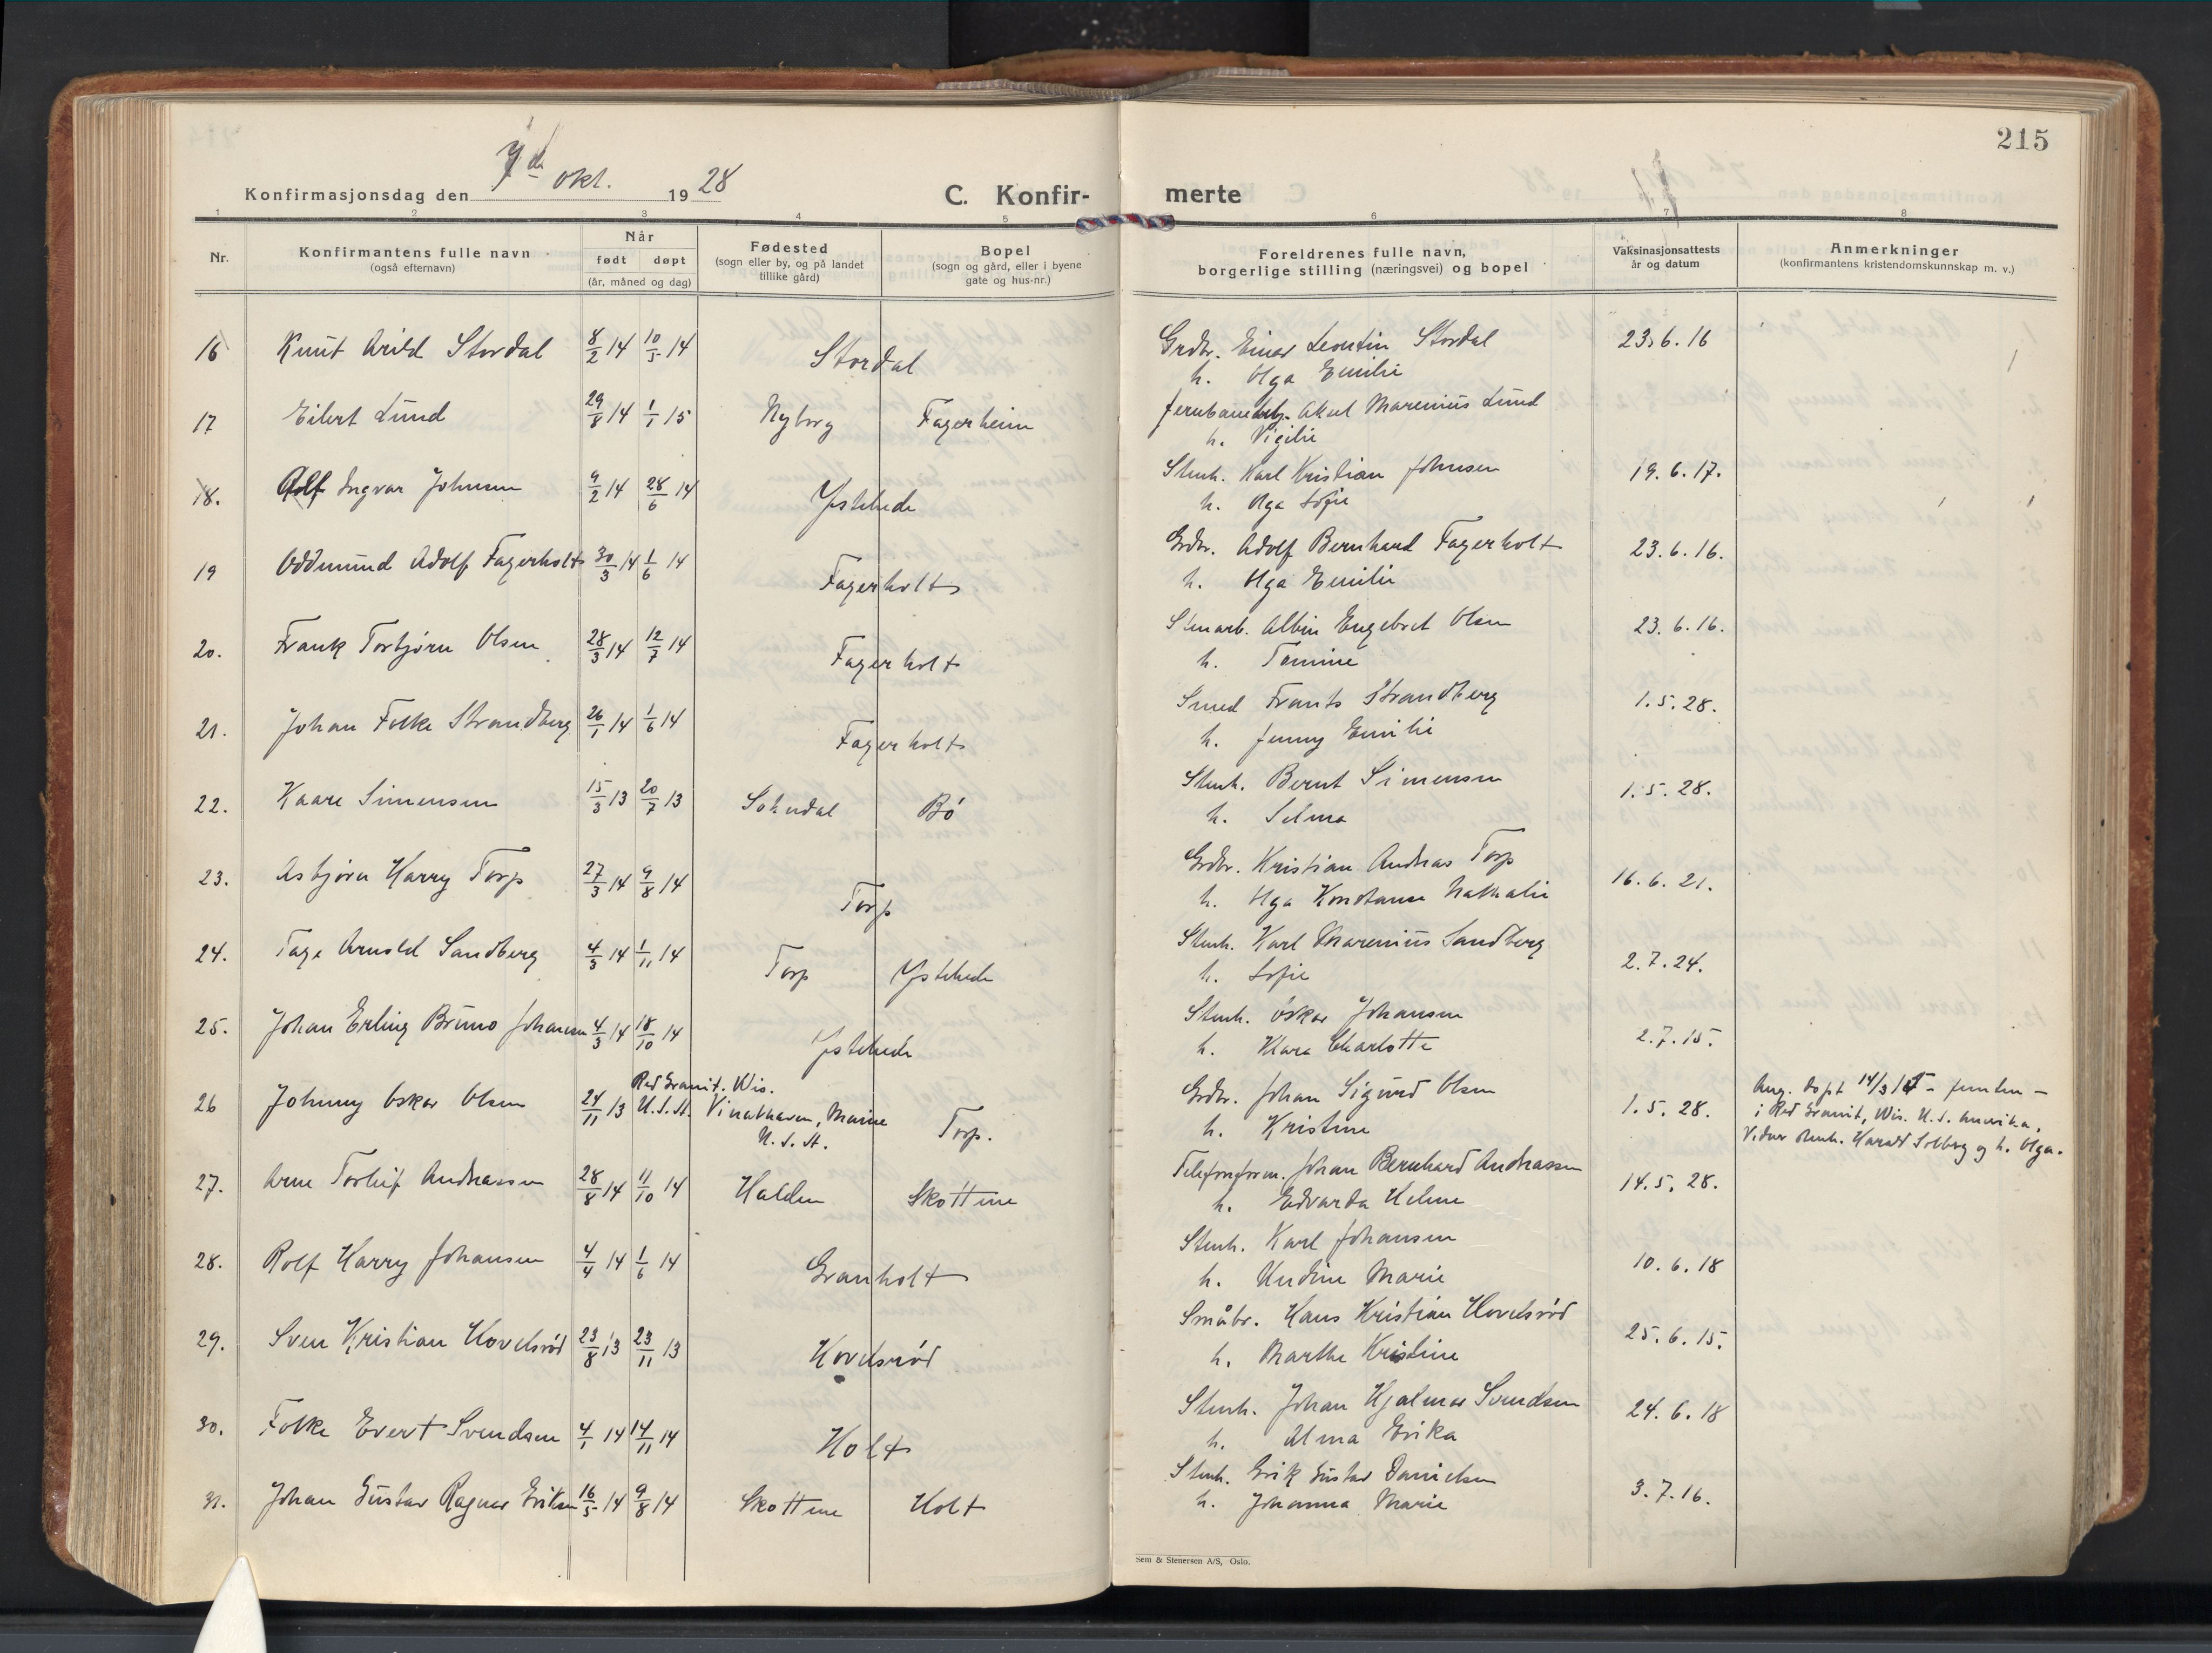 215
7 de okt. 28
Konfirmasjonsdag den 19
C. Konfir-
merte
1 2 3 4 5 6 7 8
Nr.
Konfirmantens fulle navn
(også efternavn)
Når
født døpt
(år, måned og dag)
Fødested
(sogn eller by, og på landet
tillike gård)
Bopel
(sogn og gård, eller i byene
gate og hus-nr.)
Foreldrenes fulle navn,
borgerlige stilling (næringsvei) og bopel
Vaksinasjonsattests
år og datum
Anmerkninger
(konfirmantens kristendomskunnskap m. v.)
16 Knut Arild Stordal 8/2 14 10/5 14 Stordal Grdbr. Einar Leontin Stordal 23.6.16
h. Olga Emilie
17 Eilert Lund 29/8 14 1/1 15 Nyborg Fagerheim Jernbanearb. Aksel Marenius Lund
h. Vigilie
18. Rolf Ingvar Johnsen 9/2 14 28/6 14 Ystehede Stenh. Karl Kristian Johnsen 19.6.17.
h. Olga Sofie
19 Oddmund Adolf Fagerholt 30/3 14 1/6 14 Fagerholt Grdbr. Adolf Bernhard Fagerholt 23.6.16.
h. Olga Emilie
20. Frank Torbjørn Olsen 28/3 14 12/7 14 Fagerholt Stenarb. Albin Engebret Olsen 23.6.16.
h. Tomine
21. Johan Folke Strandberg 26/1 14 1/6 14 Fagerholt Smed Frants Strandberg 1.5.28.
h. Jenny Emilie
22. Kaare Simensen 15/3 13 20/7 13 Sokndal Bø Stenh. Bernt Simensen 1.5.28.
h. Selma
23. Asbjørn Harry Torp 27/3 14 9/8 14 Torp Grdbr. Kristian Andreas Torp 16.6.21.
h. Olga Konstanse Nathalie
24. Tage Arnold Sandberg 4/3 14 1/11 14 Torp Ystehede Stenh. Karl Marenius Sandberg 2.7.24.
h. Sofie
25. Johan Erling Bruno Johansen 4/3 14 18/10 14 Ystehede Stenh. Oskar Johansen 2.7.15.
h. Klara Charlotte
26 Johnny Oskar Olsen 24/11 13 Red Granit. Wis. U.S.A. Vinalhaven, Maine U.S.A. Torp. Grdbr. Johan Sigurd Olsen 1.5.28. Ang. døpt 14/3
h. Kristine i Red Granit, Wis. U.S. Amerika.
Vidner stenh. Harald Solberg og h. Olga.
27. Arne Torleif Andreassen 28/8 14 11/10 14 Halden Skottene Telefonform. Johan Bernhard Andreassen 14.5.28.
h. Edvarda Helene
28. Rolf Harry Johansen 4/4 14 1/6 14 Granholt Stenh. Karl Johansen 10.6.18
h. Undine Marie
29. Sven Kristian Hovelsrød 23/8 13 23/11 13 Hovelsrød Småbr. Hans Kristian Hovelsrød 25.6.15.
h. Marthe Kristine
30. Folke Evert Svendsen 4/1 14 14/11 14 Holt Stenh. Johan Hjalmar Svendsen 24.6.18
h. Alma Erika
31. Johan Gustav Ragnar Eriksen 16/5 14 9/8 14 Skottene Holt Stenh. Erik Gustav Danielsen 3.7.16.
h. Johanna Marie
Sem & Stenersen A/S, Oslo.